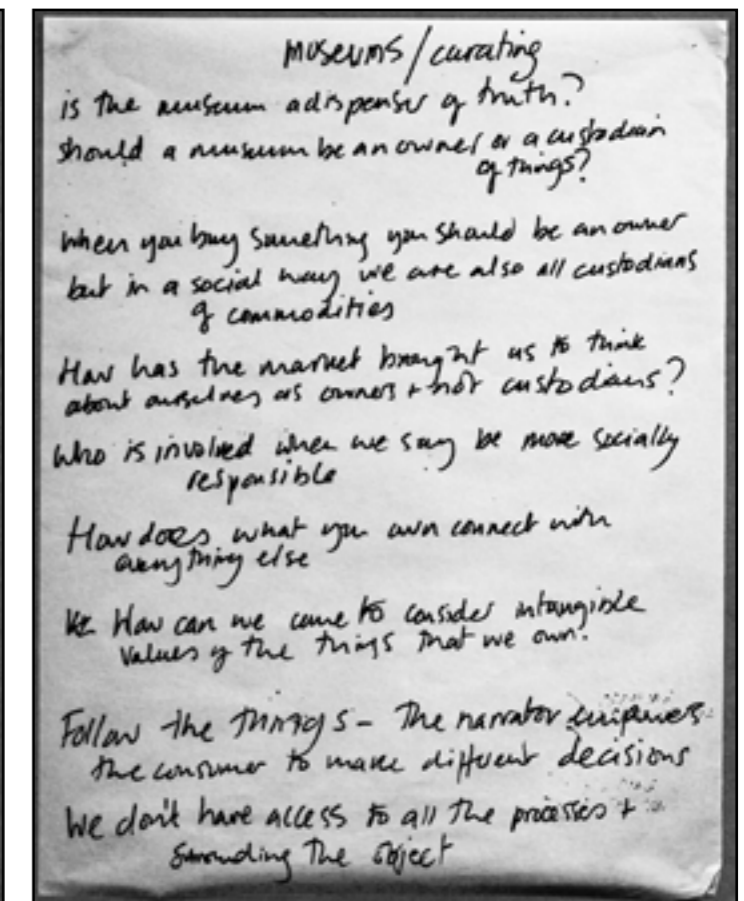 museums/curating
is the museum a dispenser of truth?
should a museum be an owner or a custodian
of things?
When you buy something you should be an owner
but in a social way we are also all custodians
of commodities
How has the market brought us to think
about ourselves as owners + not custodians?
Who is involved when we say be more socially
responsible
How does what you own connect with
everything else
How can we come to consider intangible
values of the things that we own.
Follow the things - The narrator
the consumer to make different decisions
We don't have access to all the processes +
surrounding the object